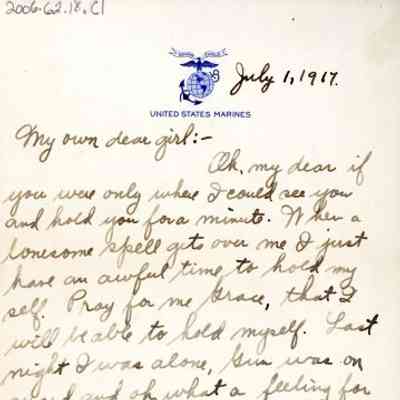 2006.62.18.C1
SEMPER FIDELIS
July 1, 1917.
UNITED STATES MARINES
My own dear girl:-
Oh, my dear if
you were only where I could see you
and hold you for a minute. When a
lonesome spell gets over me I just
have an awful time to hold my
self. Pray for me Grace, that I
will be able to hold myself. Last
night I was alone, Gus was on
guard and oh what a feeling for